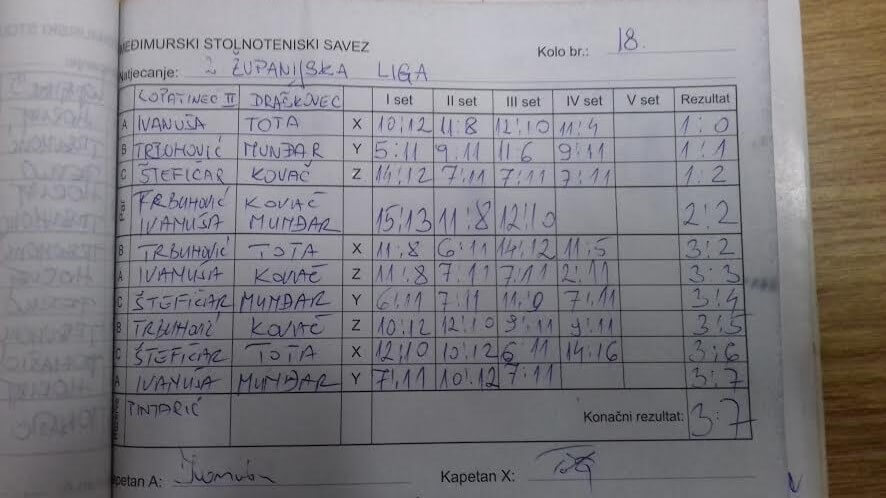 MEĐIMURSKI STOLNOTENISKI SAVEZ
Kolo br.: 18.
Natjecanje: 2 ŽUPANIJSKA LIGA
LOPATINEC II DRAŠKOVEC I set II set III set IV set V set Rezultat
A IVANUŠA TOTA X 10:12 11:8 12:10 11:4 1:0
B TRBUHOVIĆ MUNĐAR Y 5:11 9:11 11:6 9:11 1:1
C ŠTEFIČAR KOVAČ Z 14:12 7:11 7:11 7:11 1:2
TRBUHOVIĆ KOVAČ
IVANUŠA MUNĐAR 15:13 11:8 12:10 2:2
B TRBUHOVIĆ TOTA X 11:8 6:11 14:12 11:5 3:2
A IVANUŠA KOVAČ Z 11:8 7:11 7:11 2:11 3:3
C ŠTEFIČAR MUNĐAR Y 6:11 7:11 11:9 7:11 3:4
B TRBUHOVIĆ KOVAČ Z 10:12 12:10 9:11 9:11 3:5
C ŠTEFIČAR TOTA X 12:10 10:12 6:11 14:16 3:6
A IVANUŠA MUNĐAR Y 7:11 10:12 7:11 3:7
TINTARIĆ Konačni rezultat: 3:7
Kapetan A: Kapetan X: